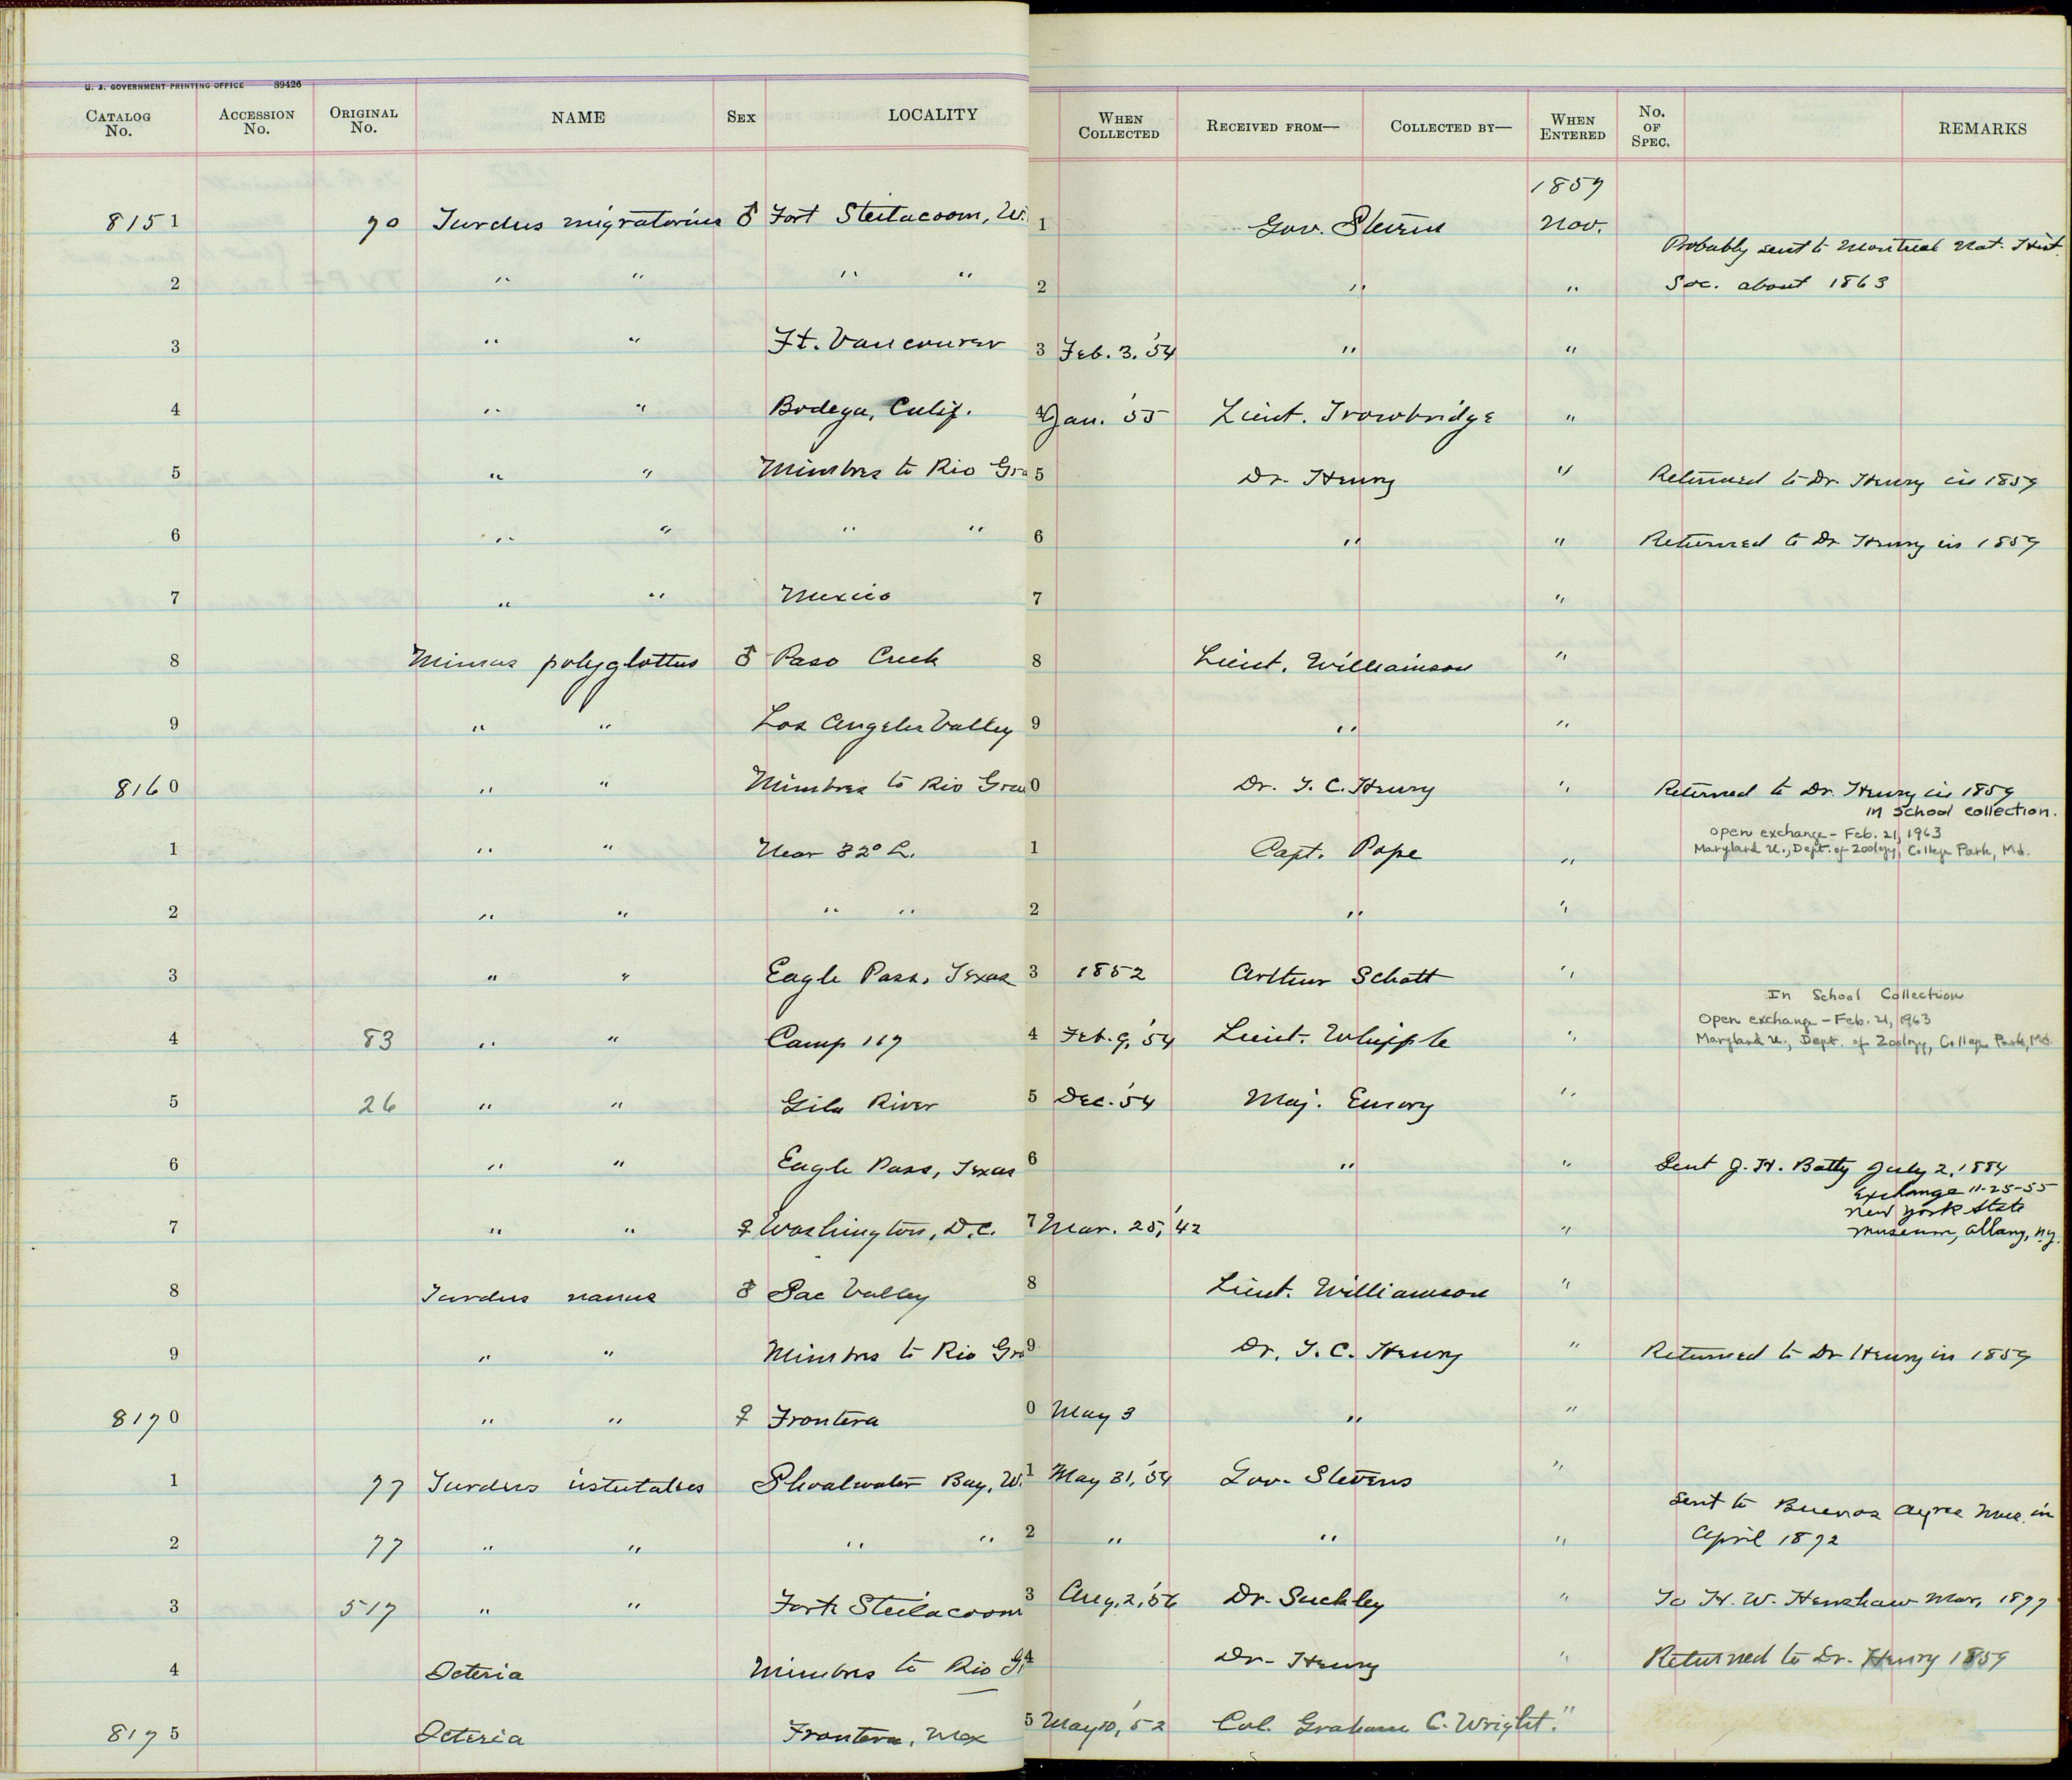 U. S. GOVERNMENT PRINTING OFFICE 89426
CATALOG No. ACCESSION No. ORIGINAL No. NAME SEX LOCALITY WHEN COLLECTED RECEIVED FROM— COLLECTED BY— WHEN ENTERED No. OF SPEC. REMARKS
1857
8151 70 Turdus migratorius ♂ Fort Steilacoom, W. 1 Gov. Stevens Nov.
Probably sent to Montreal Nat. Hist.
2 " " " " 2 " " Soc. about 1863
3 " " Ft. Vancouver 3 Feb. 3, '54 " "
4 " " Bodega, Calif. 4 Jan. '55 Lieut. Trowbridge "
5 " " Mimbres to Rio Gra 5 Dr. Henry " Returned to Dr. Henry in 1859
6 " " " " 6 " " Returned to Dr Henry in 1859
7 " " Mexico 7 "
8 Mimus polyglottus ♂ Paso Creek 8 Lieut. Williamson "
9 " " Los Angeles Valley 9 " "
8160 " " Mimbres to Rio Gran 0 Dr. T. C. Henry " Returned to Dr. Henry in 1859
in School collection.
open exchange - Feb. 21, 1963
1 " " Near 32° L. 1 Capt. Pope " Maryland U., Dept. of Zoology, College Park, Md.
2 " " " " 2 " "
3 " " Eagle Pass, Texas 3 1852 Arthur Schott "
In School Collection
Open exchange - Feb. 21, 1963
4 83 " " Camp 117 4 Feb. 9, '54 Lieut. Whipple " Maryland U., Dept. of Zoology, College Park, Md.
5 26 " " Gila River 5 Dec. '54 Maj. Emory "
6 " " Eagle Pass, Texas 6 " " Sent J. H. Batty July 2, 1884
Exchange 11-25-55
New York State
7 " " ♀ Washington, D.C. 7 Mar. 25, '42 " Museum, Albany, N.Y.
8 Turdus nanus ♂ Sac Valley 8 Lieut. Williamson "
9 " " Mimbres to Rio Gra 9 Dr. T. C. Henry " Returned to Dr Henry in 1859
8170 " " ♀ Frontera 0 May 3 " "
1 77 Turdus ustulatus Shoalwater Bay, W. 1 May 31, '54 Gov. Stevens "
Sent to Buenos Ayres Mus. in
2 77 " " " " 2 " " " April 1872
3 517 " " Fort Steilacoom 3 Aug. 2, '56 Dr. Suckley " To H. W. Henshaw Mar, 1877
4 Icteria Mimbres to Rio Gr 4 Dr. Henry " Returned to Dr. Henry 1859
8175 Icteria Frontera, Mex 5 May 10, '52 Col. Graham C. Wright. "